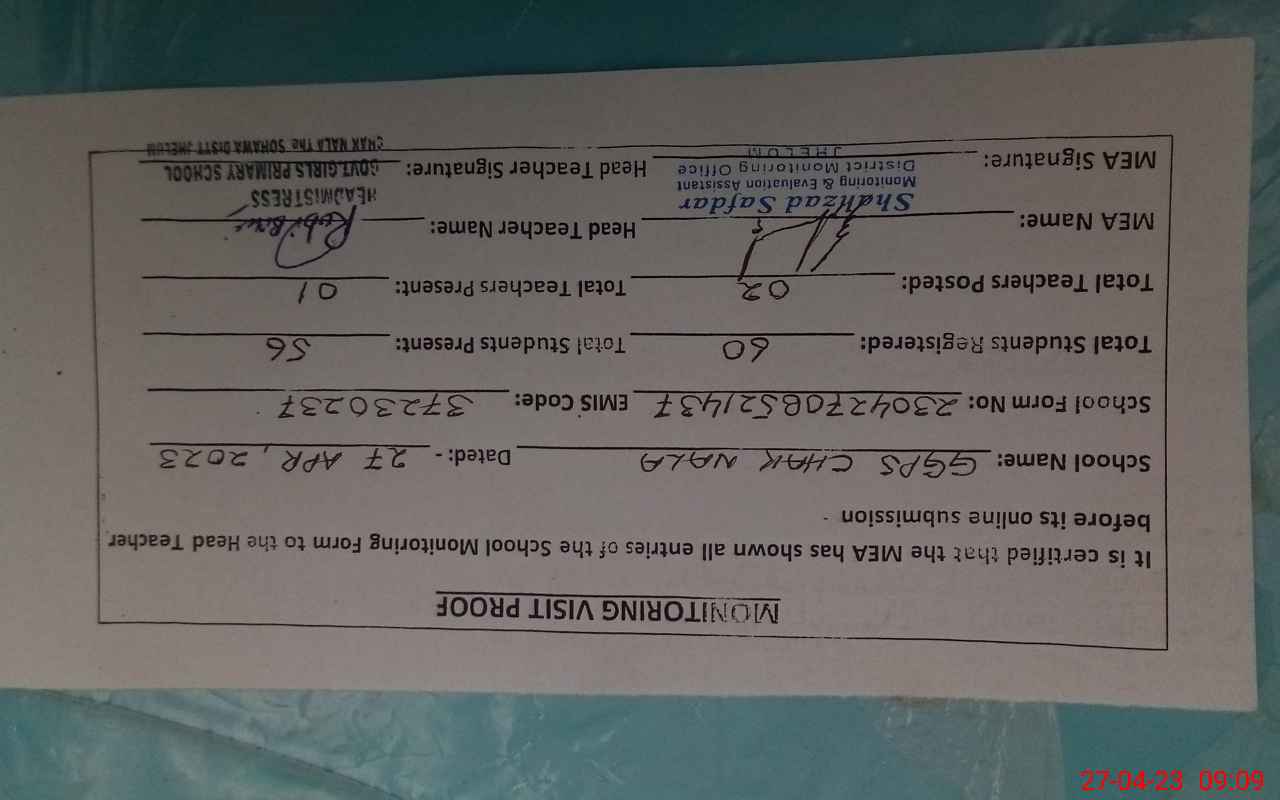 MONITORING VISIT PROOF
It is certified that the MEA has shown all entries of the School Monitoring Form to the Head Teacher
before its online submission
School Name: GGPS CHAK NALA Dated: - 27 APR, 2023
School Form No: 23042708521437 EMIS Code: 37230237
Total Students Registered: 60 Total Students Present: 56
Total Teachers Posted: 02 Total Teachers Present: 01
MEA Name: Head Teacher Name:
Shahzad Safdar HEADMISTRESS
Monitoring & Evaluation Assistant
District Monitoring Office GOVT.GIRLS PRIMARY SCHOOL
MEA Signature: JHELUM Head Teacher Signature:
CHAK NALA The SOHAWA DISTT JHELUM
27-04-23 09:09